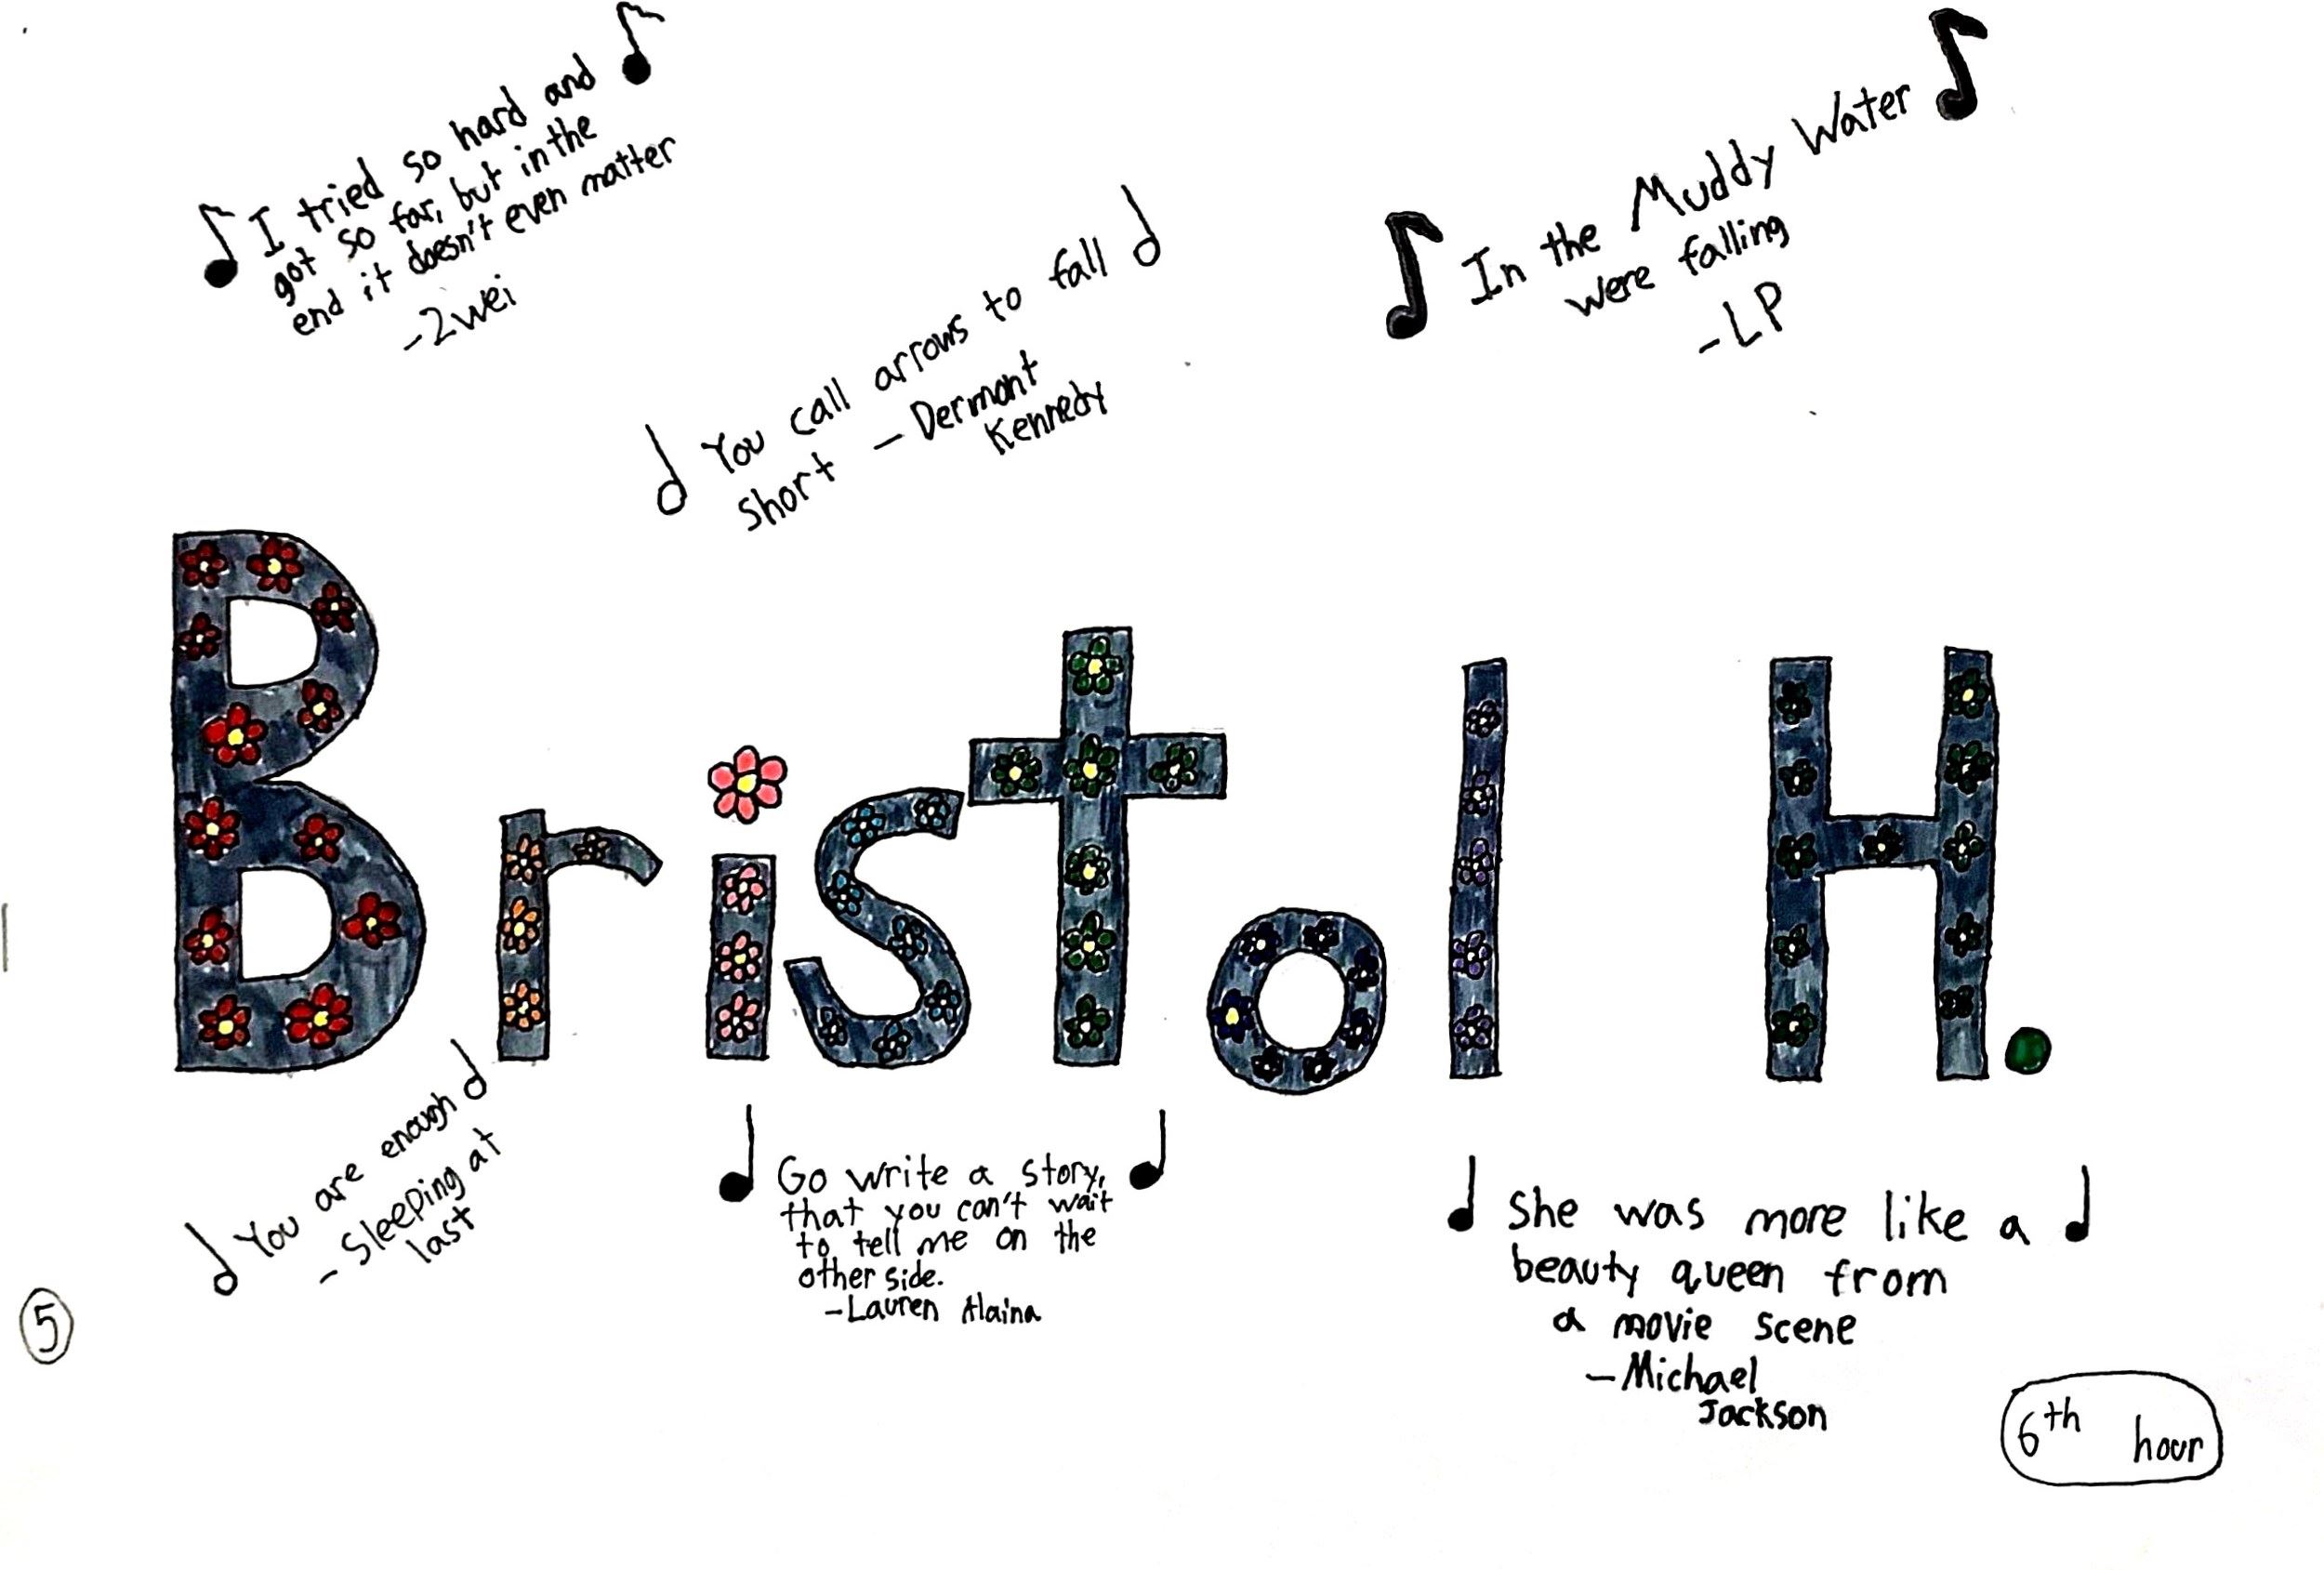 I tried so hard and
got so far, but in the
end it doesn't even matter
-2wei
You call arrows to fall
short - Dermont
Kennedy
In the Muddy Water
were falling
-LP
Bristol H.
You are enough
- Sleeping at
last
Go write a story,
that you can't wait
to tell me on the
other side.
-Lauren Alaina
She was more like a
beauty queen from
a movie scene
-Michael
Jackson
5
6th hour